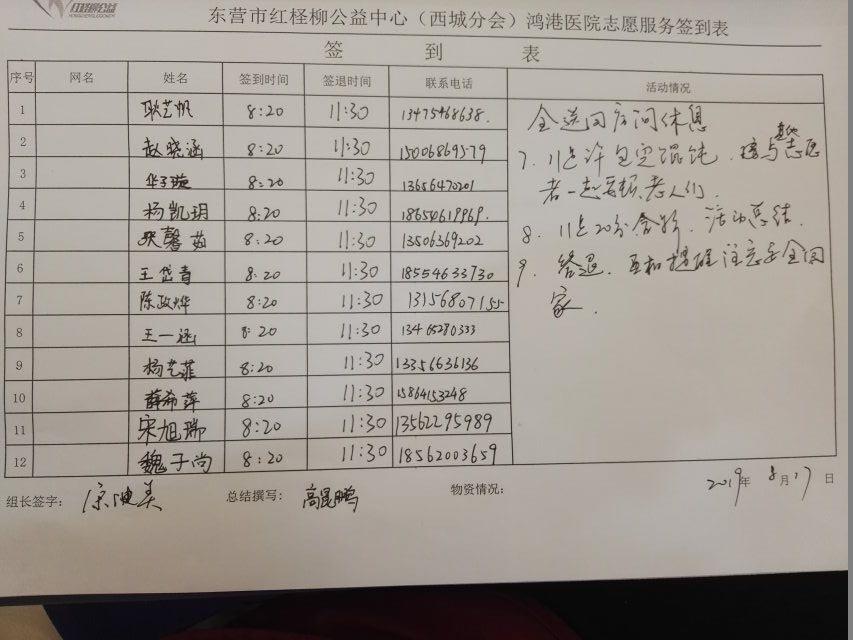 红柽柳公益
东营市红柽柳公益中心（西城分会）鸿港医院志愿服务签到表
签 到 表
序号 网名 姓名 签到时间 签退时间 联系电话 活动情况
1 耿艺帆 8:20 11:30 13475468638.
2 赵晓涵 8:20 11:30 15006869579
3 华子璇 8:20 11:30 13656470201
4 杨凯玥 8:20 11:30 18650619969.
5 馨茹 8:20 11:30 13506369202
6 王岱青 8:20 11:30 18554633730
7 陈政烨 8:20 11:30 13156807155
8 王一涵 8:20 11:30 13465280333
9 杨艺菲 8:20 11:30 13356636136
10 薛希萍 8:20 11:30 15864153248
11 宋旭瑞 8:20 11:30 13562295989
12 魏子尚 8:20 11:30 18562003659
全送回房间休息
7. 11点许包完馄饨. 志愿
者一起 老人们.
8. 11点20分合影. 活动总结.
9. 签退. 互相提醒注意安全回
家.
组长签字： 总结撰写：高昆鹏 物资情况： 2019年 8月17日